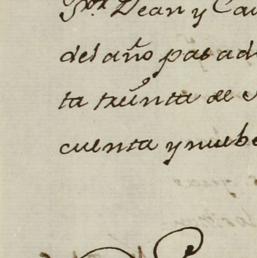 Dean y Ca
del año pasad
ta treinta de
cuenta y nueb